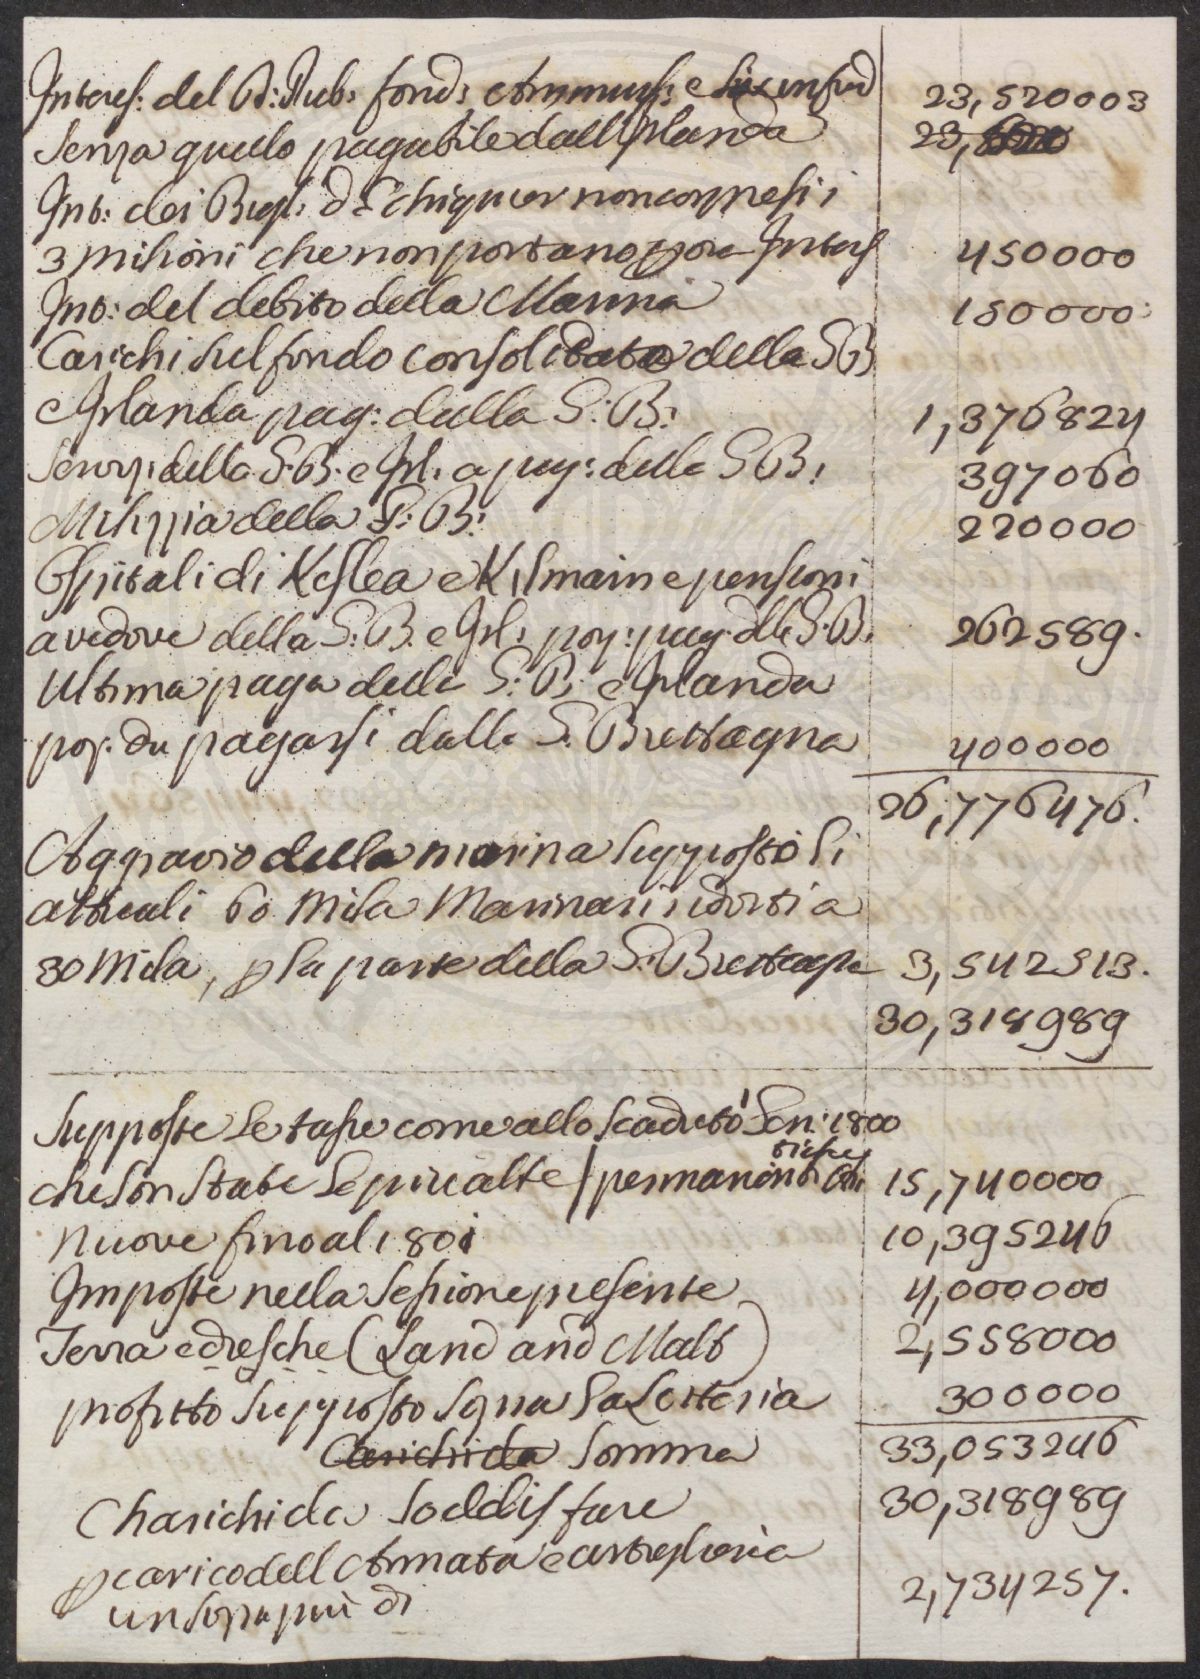 Interess: del D: Pub: fond: Ammuss: e 23,520003
Senza quello pagabile dall Irlanda 23,
Int: dei Bigl: d Echiquier non compresi i
3 milioni che non portano ora Interess 450000
Int: del debito della Marina 150000
Carichi sul fondo consolidato della G B
e Irlanda pag: dalla G: B: 1,376824
Servizi della G: B: e Irl: a pag: dalla G B: 397060
Milizzia della G: B: 220000
Ospitali di Keslea e Kilmain e pensioni
a vedove della G: B. e Irl: por: pag: dlla G: B: 262589.
Ultima paga della G: B: e Irlanda
por: da pagarsi dalla G. Brettagna 400000
26,776476.
Aggravio della marina supposto li
attuali 60 mila Marinari ridotti a
30 Mila, p la parte della G: Brettagna 3,542513.
30,318989
Supposte le tasse come allo scaduto Gen: 1800
che son state le piu alte / permanenti 15,740000
Nuove fino al 1801 10,395246
Imposte nella sessione presente 4,000000
Terra e dresche (Land and Malt) 2,558000
profitto supposto sopra la Lotteria 300000
Carichi da Somma 33,053246
Charichi da Soddisfare 30,318989
p carico dell Armata e artiglieria
un sopra piu di 2,734257.